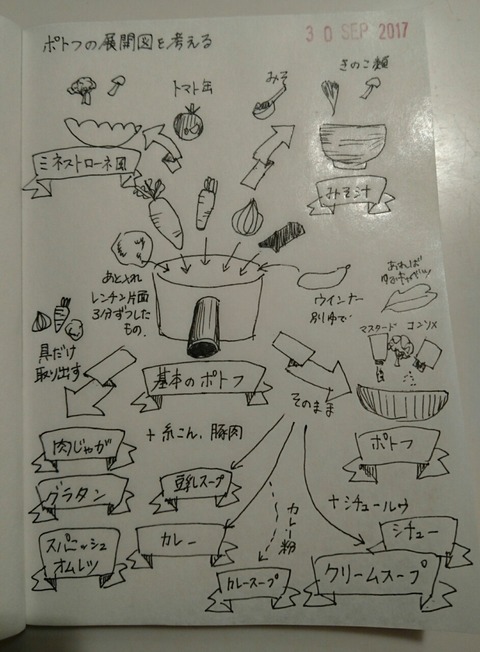 ポトフの展開図を考える
30 SEP 2017
トマト缶
みそ
きのこ類
ミネストローネ風
みそ汁
あと入れ
レンチン片面
3分ずつした
もの。
ウインナー
別ゆで
あれば
ゆるキャベツ
マスタード
コンソメ
具だけ
取り出す
基本のポトフ
そのまま
ポトフ
肉じゃが
+糸こん、豚肉
グラタン
豆乳スープ
スパニッシュ
オムレツ
カレー
カレー粉
カレースープ
+シチュールウ
シチュー
クリームスープ